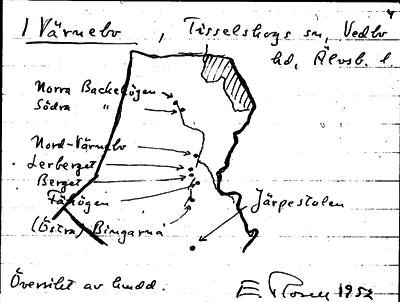 1 Värnebo, Tisselskogs sn, Vedbo
hd, Älvsb. l.
Norra Backehögen
Södra "
Nord-Värnebo
Lerberget
Berget
(Östra) Bingarna
Järpestolen
Översikt av
E. 1952